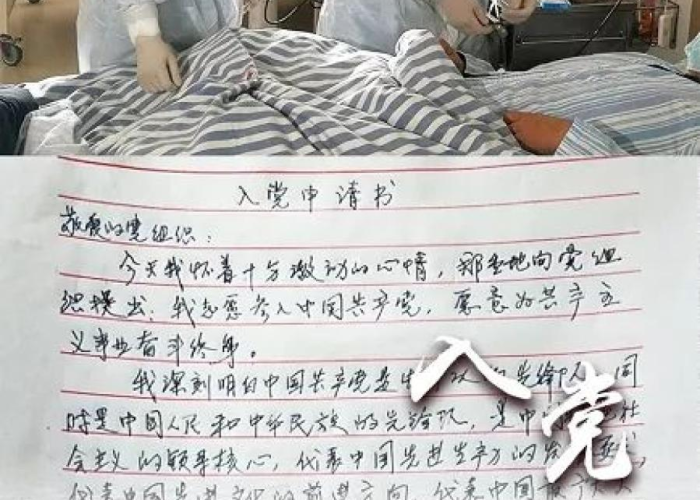 入党申请书
敬爱的党组织：
今天我怀着十分激动的心情，郑重地向党组
织提出：我志愿加入中国共产党，愿意为共产主
义事业奋斗终身。
我深刻明白中国共产党是中 队 先锋队 同
时是中国人民和中华民族的先锋队，是中 社
会主义的领导核心，代表中国先进生产力的发 要求，
代表中国先进文化的前进方向，代表中国最广大人
入党